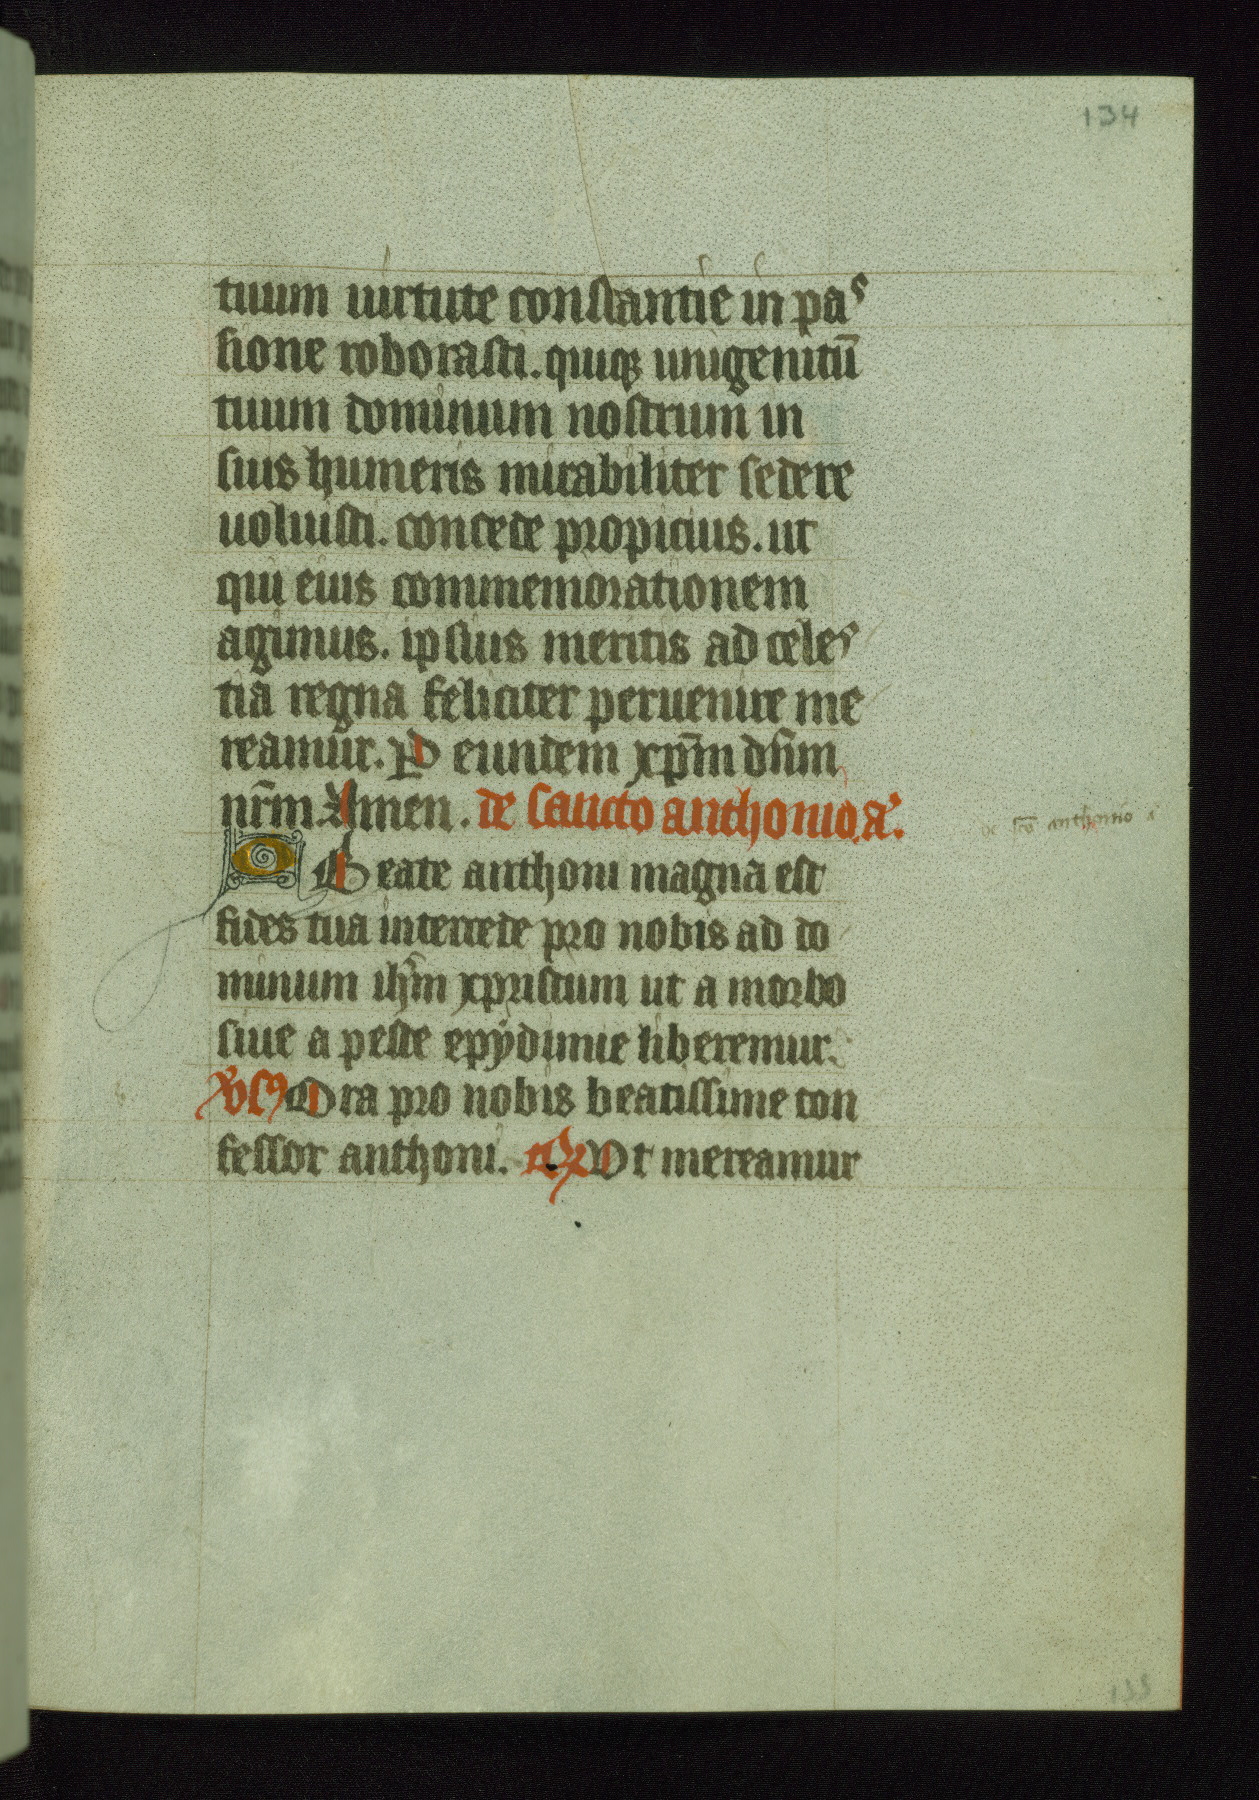 134
tuum uirtute constantie in pas
sione roborasti. quiqꝫ unigenitū
tuum dominum nostrum in
suis humeris mirabiliter sedere
uoluisti. concede propicius. ut
qui eius commemorationem
agimus. ipsius meritis ad celes
tia regna feliciter peruenire me
reamur. P eundem xp̄m dn̄m
nr̄m Amen. de sancto anthonio. a̾.
de sc̄o anthonio a
O Beate anthoni magna est
fides tua intercede pro nobis ad do
minum ih̄m xpristum ut a morbo
siue a peste epydimie liberemur.
v̾s᷒ Ora pro nobis beatissime con
fessor anthoni. R Vt mereamur